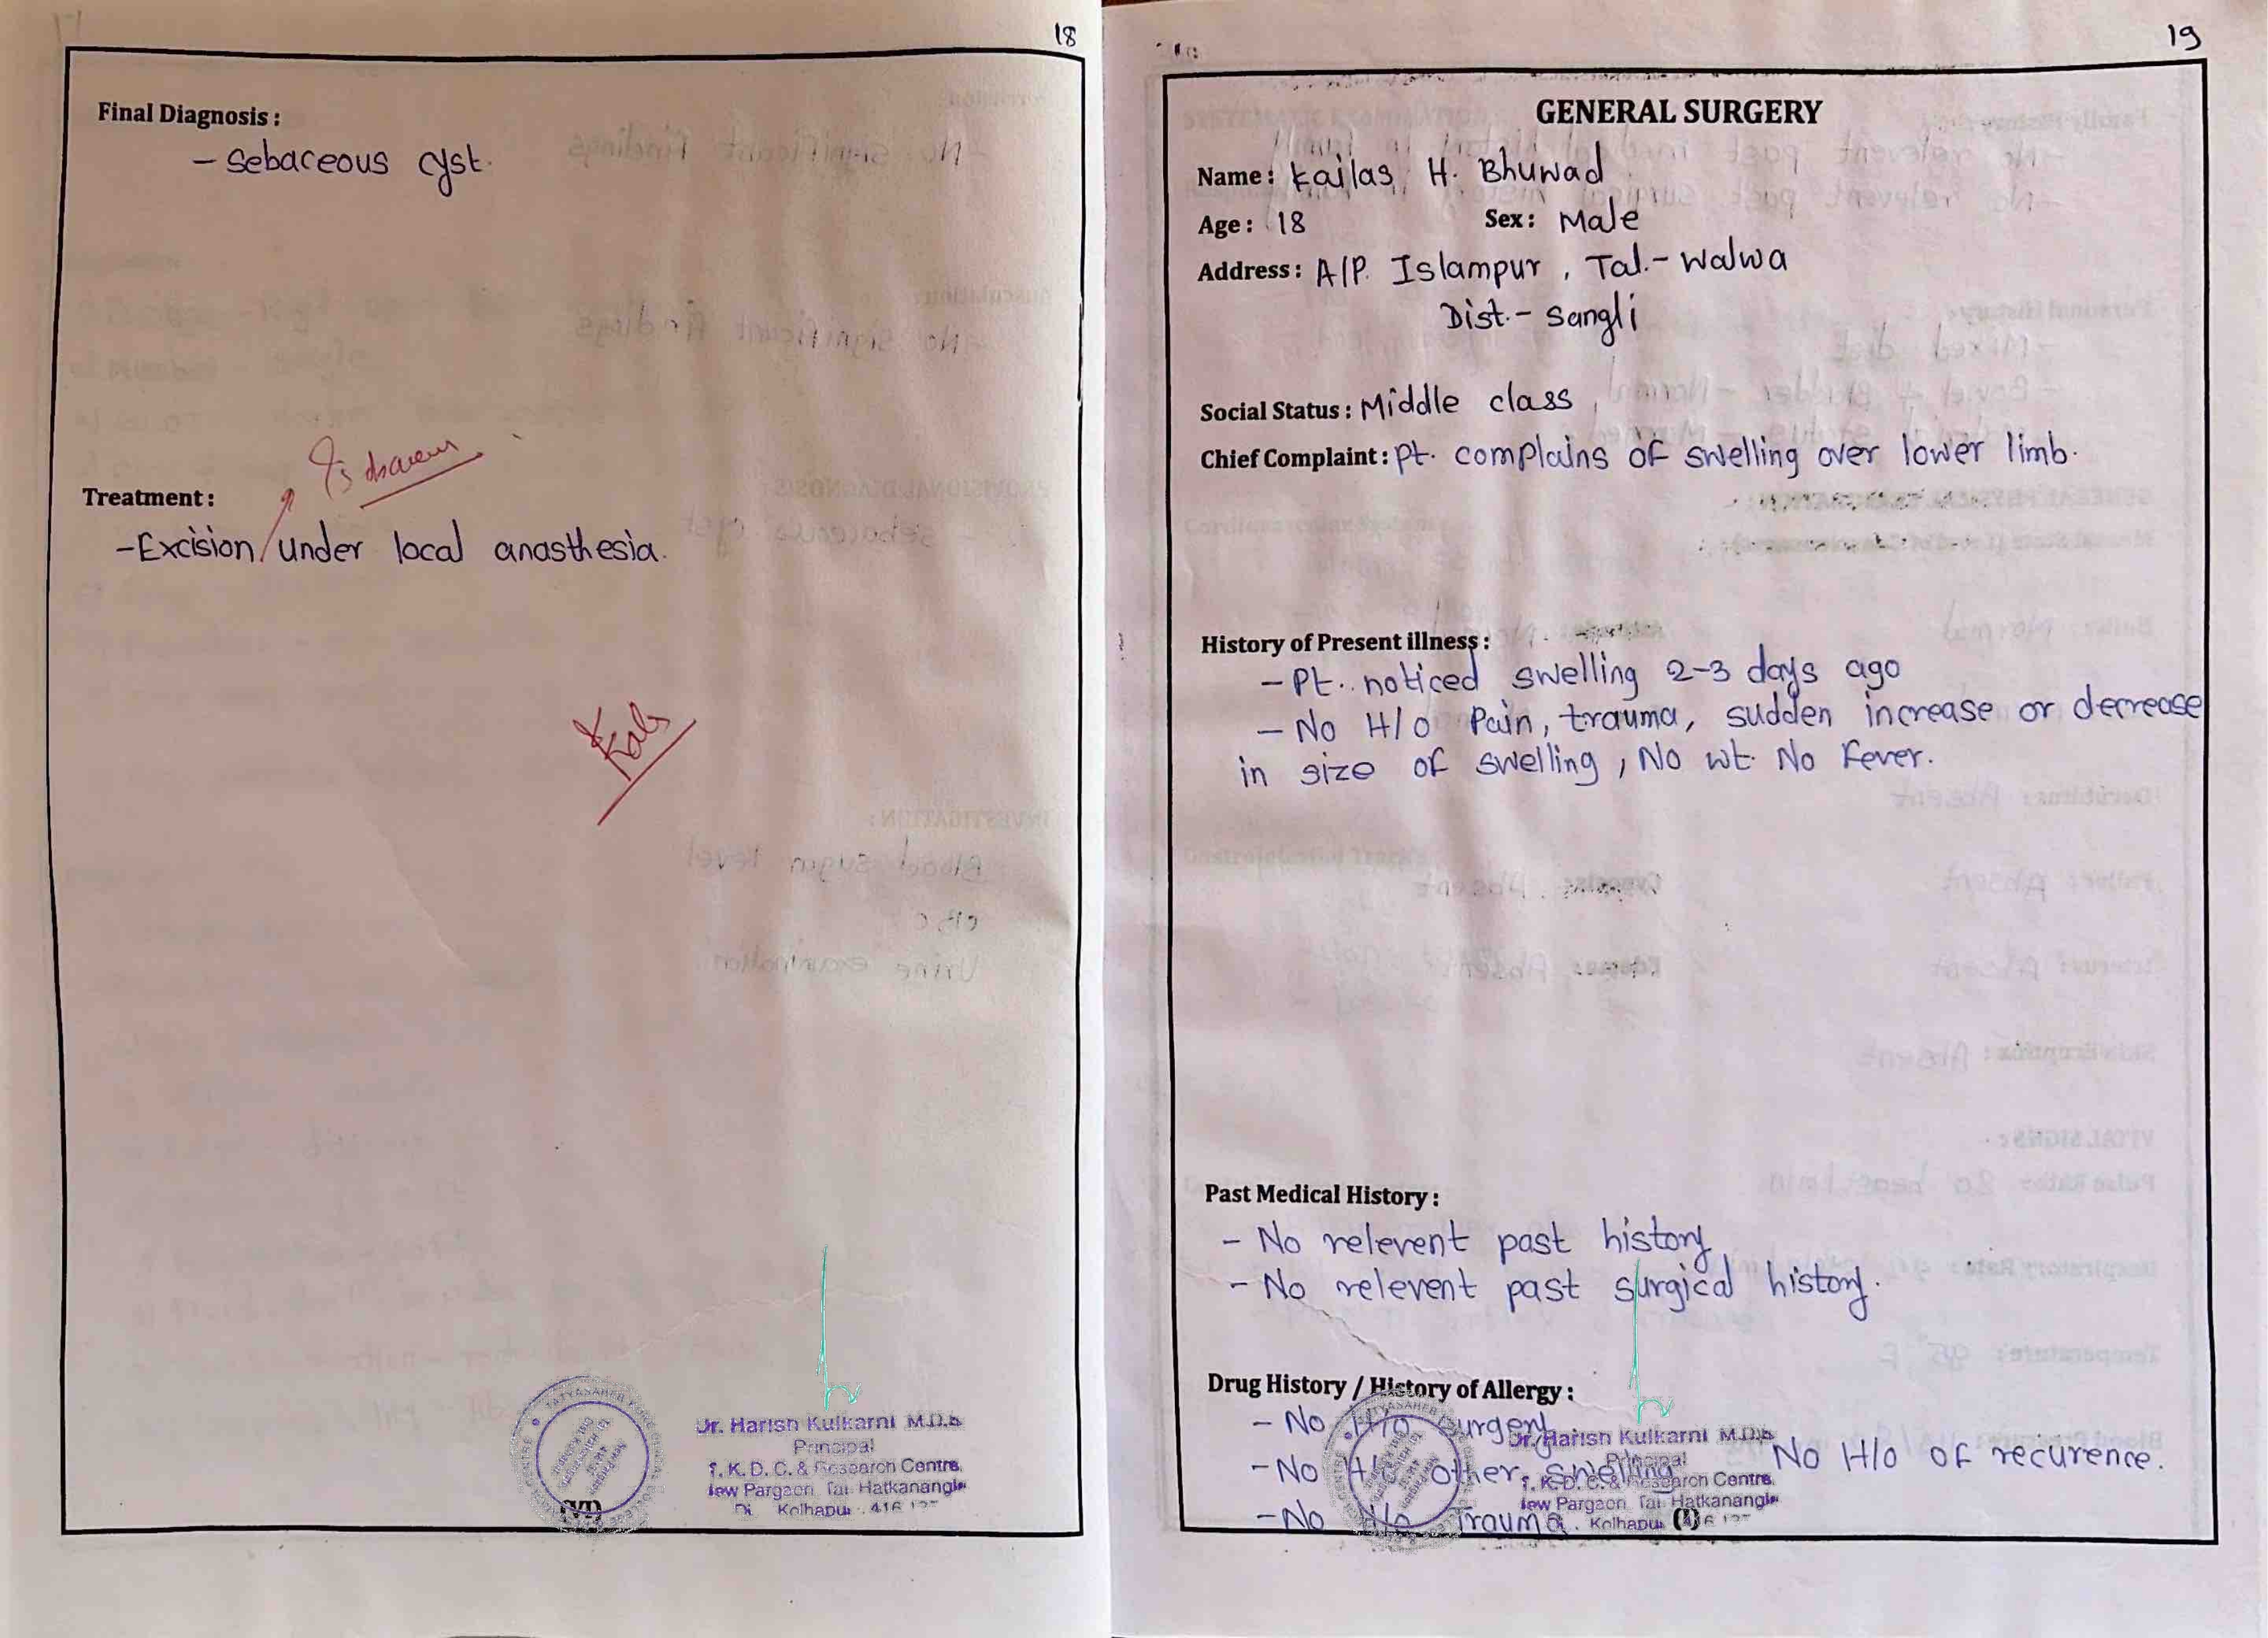 18
Final Diagnosis :
- Sebaceous cyst.
Treatment :
-Excision under local anasthesia.
Dr. Harish Kulkarni M.D.S
Principal
T. K. D. C. & Research Centre,
New Pargaon Tal. Hatkanangle
Di Kolhapur 416 137
(VI)
19
GENERAL SURGERY
Name : Kailas H. Bhuwad
Age : 18 Sex : Male
Address : A/P. Islampur , Tal.- Walwa
Dist.- Sangli
Social Status : Middle class
Chief Complaint : Pt. complains of swelling over lower limb.
History of Present illness :
- Pt. noticed swelling 2-3 days ago
- No H/o Pain, trauma, sudden increase or decrease
in size of swelling , No wt. No Fever.
Past Medical History :
- No relevent past history
- No relevent past surgical history.
Drug History / History of Allergy :
- No H/o surgery
- No H/o other swelling No H/o of recurence.
- No H/o Trauma.
Dr. Harish Kulkarni M.D.S
Principal
T. K. D. C. & Research Centre,
New Pargaon Tal. Hatkanangle
Kolhapur
(I)